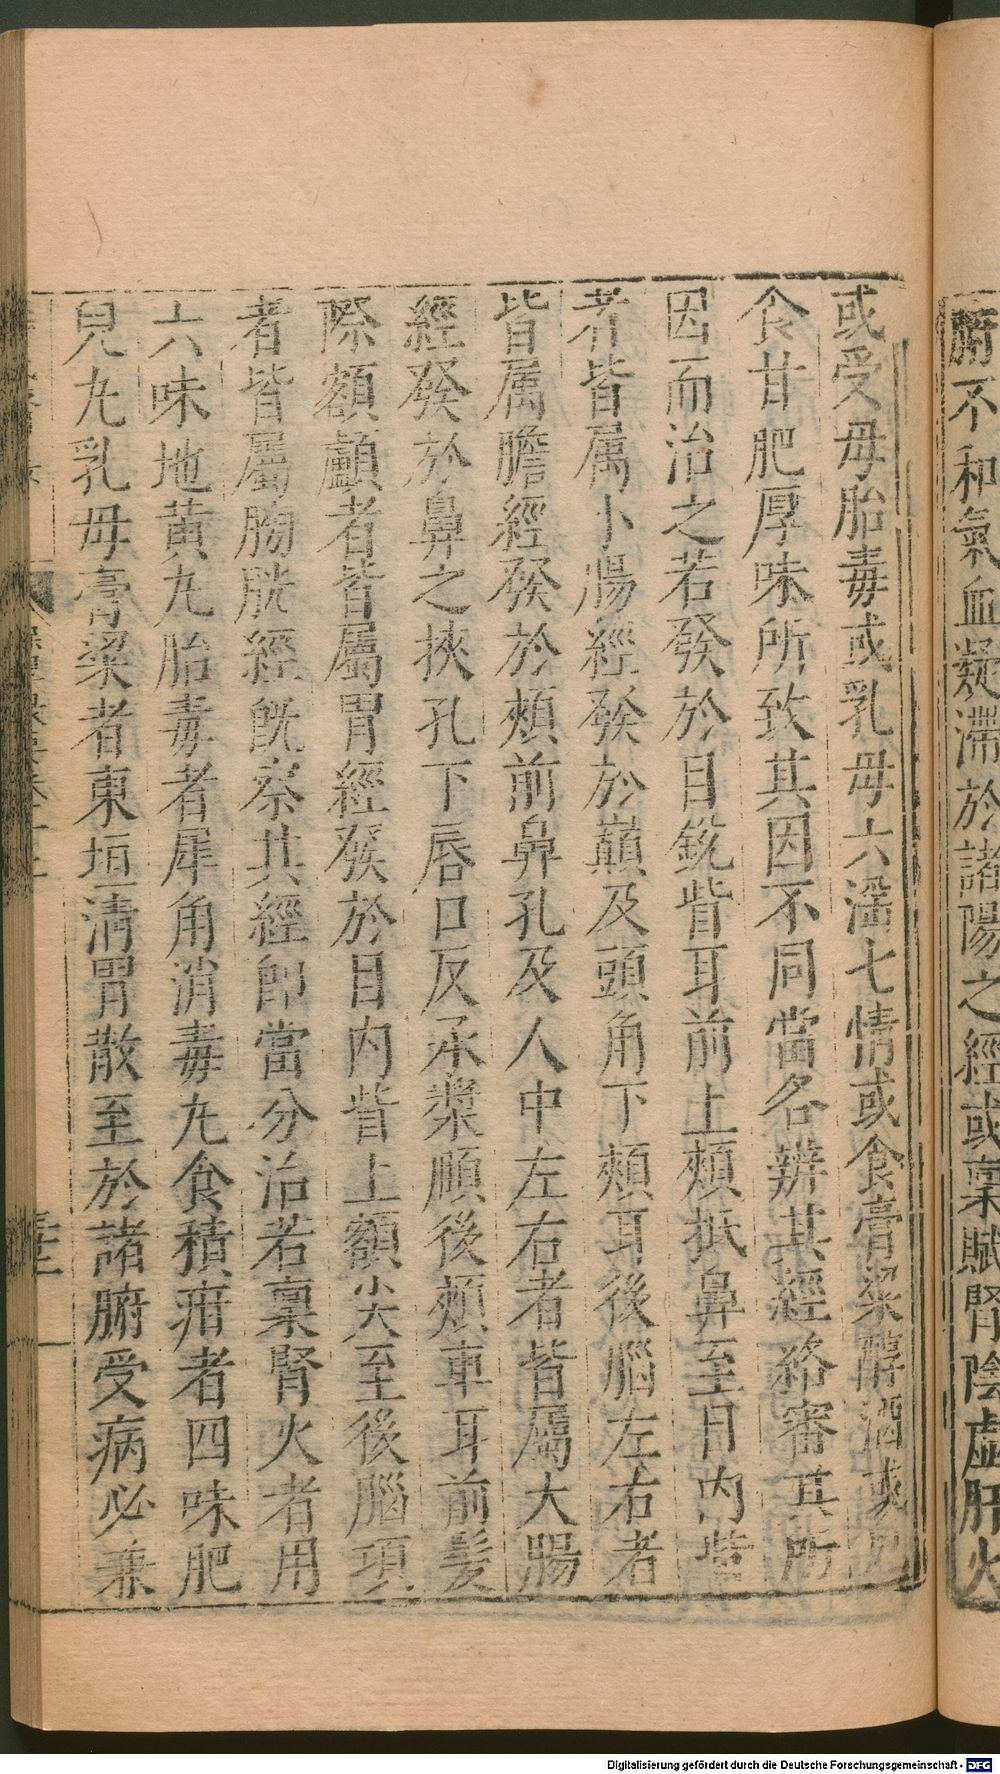 腑不和氣血凝滯於諸陽之經或稟賦腎陰虛肝火
或受毋胎毒或乳毋六淫七情或食膏梁醇酒或
食甘肥厚味所致其因不同當各辨其經絡審其所
因而治之若發於目銳眥耳前上頰抵鼻至目內眥
者皆属小腸經發於巔及頭角下頰耳後腦左右者
皆属膽經發於頰前鼻孔及人中左右者皆屬大腸
經發於鼻之挾孔下唇口反承漿頤後頰車耳前髮
際額顱者皆屬胃經發於目内眥上額尖至後腦項
者皆屬膀胱經旣察其經卽當分治若稟腎火者用
六味地黄丸胎毒者犀角消毒丸食積疳者四味肥
兒丸乳母膏梁者東垣清胃散至於諸腑受病必兼
Digitalisierung gefördert durch die Deutsche Forschungsgemeinschaft - DFG